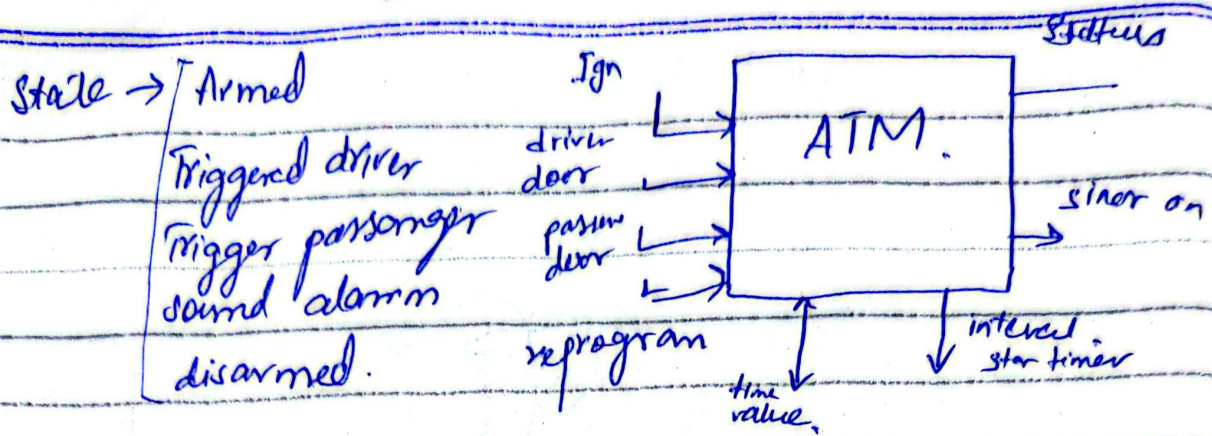 State → Armed
Triggered driver
Trigger passomgor
sound alarm
disarmed.
Ign
driver
door
passen
door
reprogram
ATM.
Status
siner on
interval
star timer
time
value.